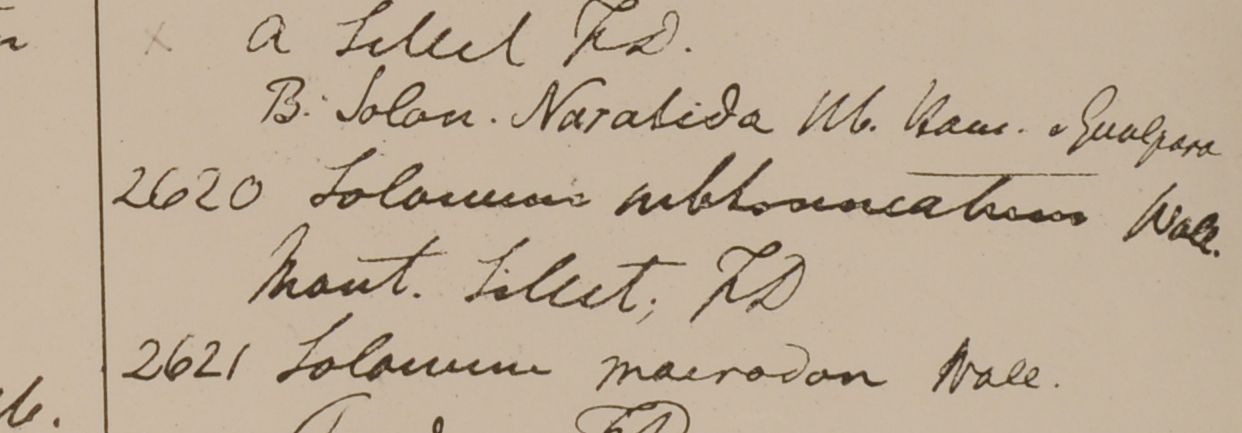 a Sillet FD.
B. Solan. Narabida Hb. Ham. e Gualpara
2620 Solanum subtruncatum Wall.
Mont. Sillet, FD
2621 Solanum macrodon Wall.
FD